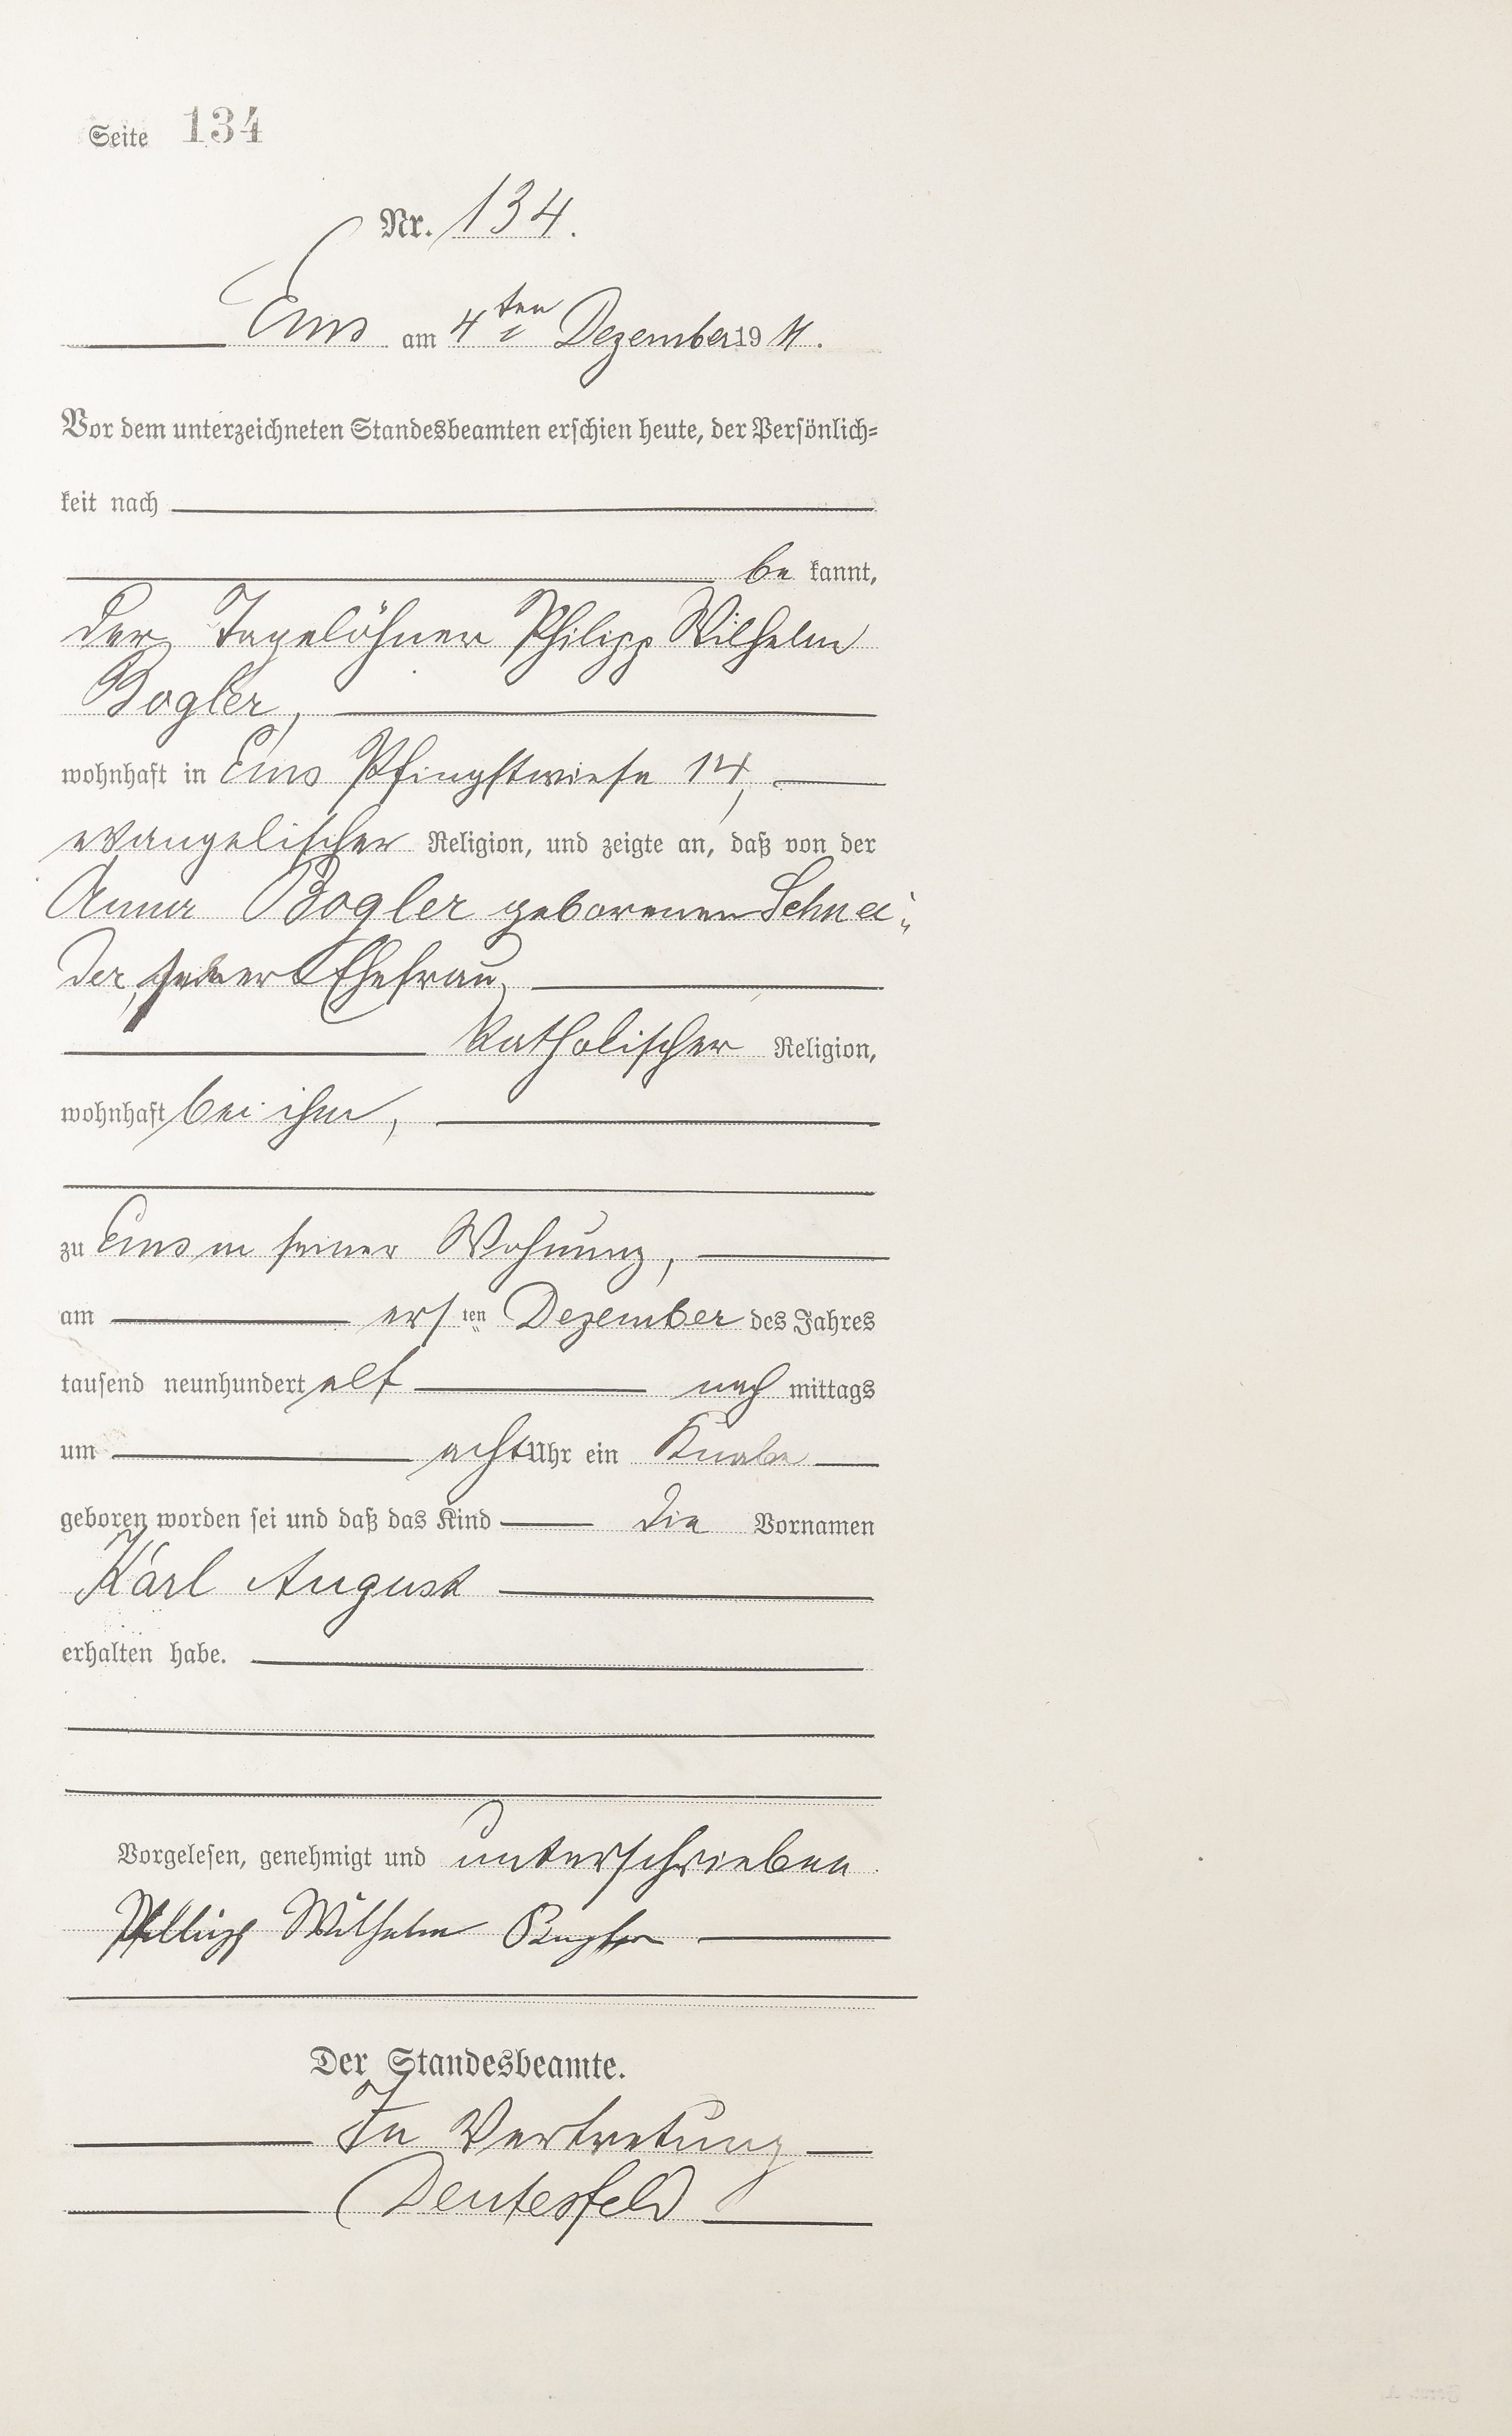 Seite 134
Nr. 134.
Ems am 4ten Dezember 19 11.
Vor dem unterzeichneten Standesbeamten erschien heute, der Persönlich-
keit nach
be kannt,
der Tagelöhner Philipp Wilhelm
Bogler,
wohnhaft in Ems Pfingstwiese 14,
evangelischer Religion, und zeigte an, daß von der
Anna Bogler geborenen Schnei-
der, seiner Ehefrau,
katholischer Religion,
wohnhaft bei ihm,
zu Ems in seiner Wohnung,
am ersten Dezember des Jahres
tausend neunhundert elf nach mittags
um acht Uhr ein Knabe
geboren worden sei und daß das Kind die Vornamen
Karl August
erhalten habe.
Vorgelesen, genehmigt und unterschrieben
Wilhelm Bogler
Der Standesbeamte.
In Vertretung
Deutesfeld